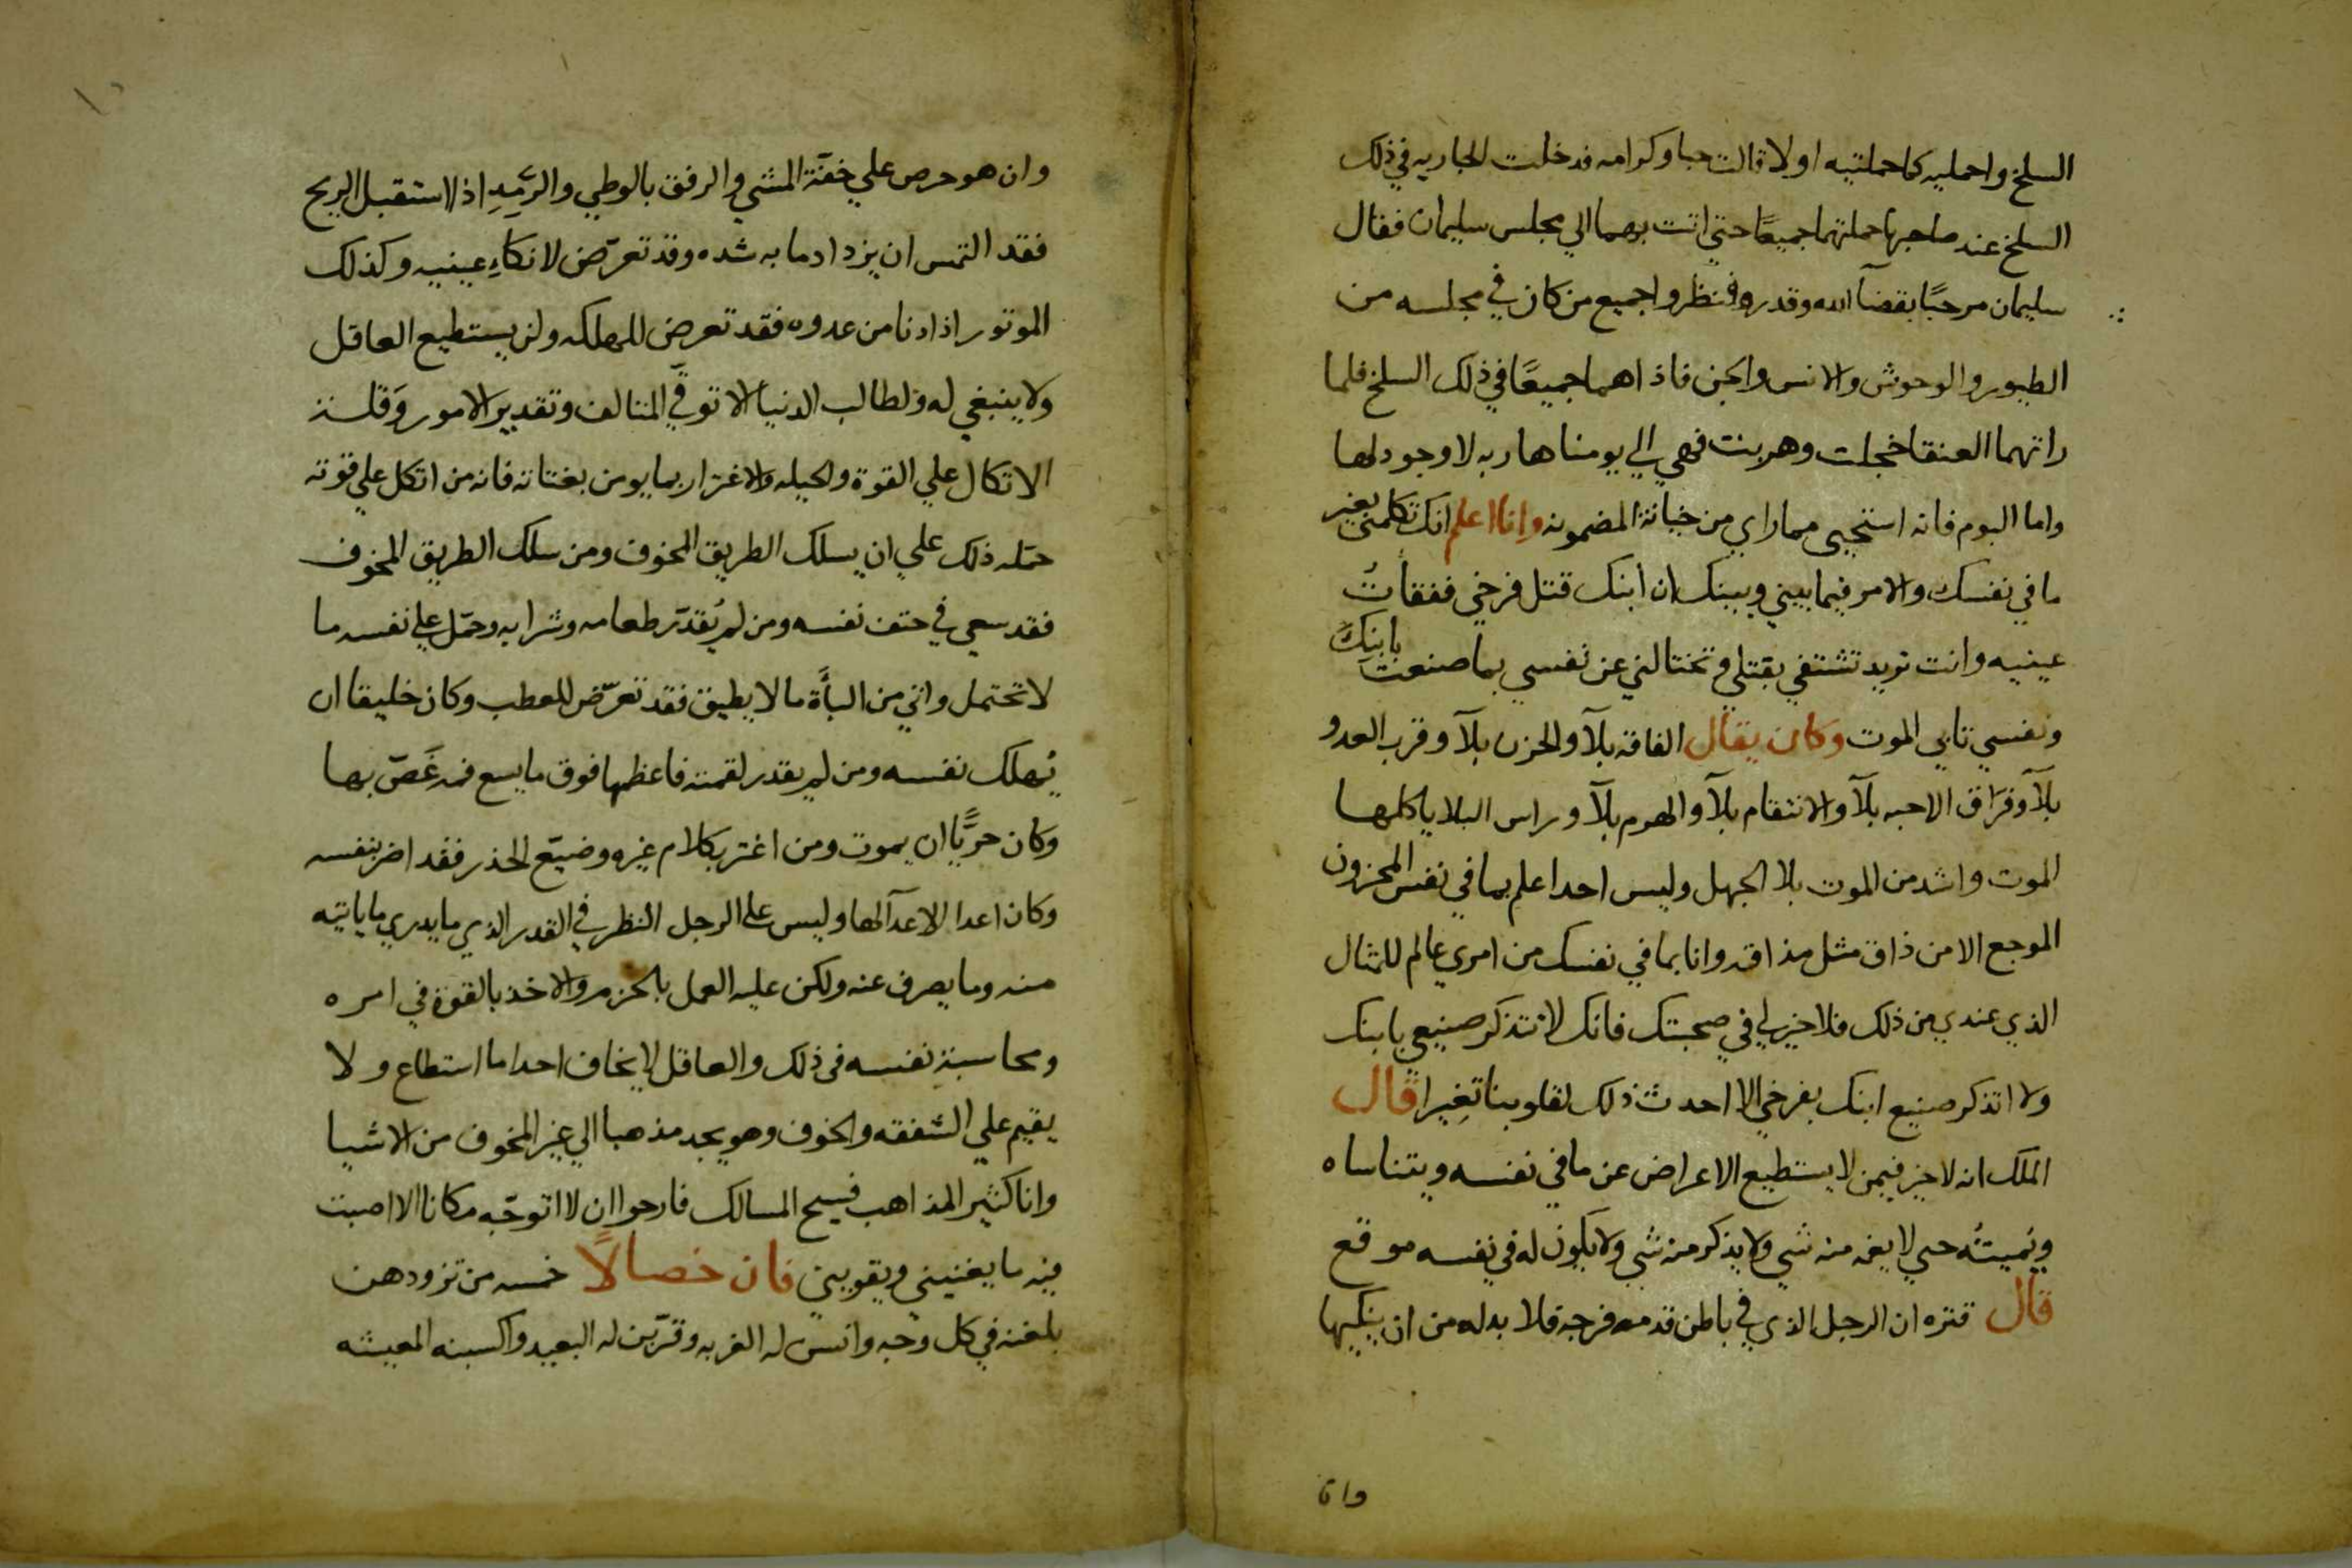 السلخ واحمليه كما حملتيه اولا قالت حبا وكرامه فدخلت الجاريه في ذلك
السلخ عند صاحبها حملتهما جميعًا حتي اتت بهما الي مجلس سليمان فقال
سليمان مرحبًا بقضآ الله وقدره فنظروا جميع من كان في مجلسه من
الطيور والوحوش والانس والجن فاذا هما جميعًا في ذلك السلخ فلما
راتهما العنقا خجلت وهربت فهي الي يومنا هاربه لا وجود لها
واما البوم فانه استحيى مما راي من خيانة المضمونه وانا اعلم انك تكلمني بغير
ما في نفسك والامر فيما بيني وبينك ان ابنك قتل فرخي ففقأتُ
عينيه وانت تريد تشتفي بقتلي وتختالني عن نفسي بما صنعت بابنك
ونفسي تابي الموت وكان يقال الفاقه بلآ والحزن بلآ وقرب العدو
بلآ وفراق الاحبه بلآ والانتقام بلآ والهرم بلآ وراس البلايا كلها
الموت واشد من الموت بلا الجهل وليس احدا علم بما في نفس المحزون
الموجع الا من ذاق مثل مذاقه وانا بما في نفسك من امري عالم للمثال
الذي عندي من ذلك فلا خير لي في صحبتك فانك لا تتذكر صنيعي بابنك
ولا اتذكر صنيع ابنك بفرخي الا احدث ذلك لقلوبنا تغيرا قال
الملك انه لا خير فيمن لا يستطيع الاعراض عن ما في نفسه ويتناساه
ويُميتُه حتي لا يغمه منه شي ولا يذكر منه شي ولا يكون له في نفسه موقع
قال قنزه ان الرجل الذي في باطن قدمه فرجة فلا بد له من ان ينكيها
وان
وان هو حرص علي خفّة المشي والرفق بالوطي والرَّمِد اذا استقبل الريح
فقد التمس ان يزداد ما به شده وقد تعرّض لانكاءِ عينيه وكذلك
الموتور اذا دنا من عدوه فقد تعرض للهلكه ولن يستطيع العاقل
ولا ينبغي له ولطالب الدنيا الا توقّي المتالف وتقدير الامور وقلة
الاتكال علي القوة والحيله والاغترار بما يومن بغتاته فانه من اتكل علي قوته
حمّله ذلك علي ان يسلك الطريق المخوف ومن سلك الطريق المخوف
فقد سعي في حتف نفسه ومن لم يُقدّر طعامه وشرابه وحمّل علي نفسه ما
لا تحتمل واتي من الباأة ما لا يطيق فقد تعرّض للعطب وكان خليقا ان
يُهلك نفسه ومن لم يقدر لقمته فاعظمها فوق ما يسع فمه غَصّ بها
وكان حريًّا ان يموت ومن اغتر بكلام غيره وضيّع الحذر فقد اضر بنفسه
وكان اعدا الاعدآ لها وليس علي الرجل النظر في القدر الذي ما يدري ما ياتيه
منه وما يصرف عنه ولكن عليه العمل بالحزم والاخذ بالقوة في امره
ومحاسبة نفسه في ذلك والعاقل لا يخاف احدا ما استطاع ولا
يقيم علي الشفقه والخوف وهو يجد مذهبا الي غير المخوف من الاشيا
وانا كثير المذاهب فسيح المسالك فارجوا ان لا اتوجّه مكانا الا اصبت
فيه ما يغنيني ويقويني فان خصالًا خمسه من تزودهن
بلغنه في كل وجه وانس له الغربه وقرّبن له البعيد واكسبنه المعيشه